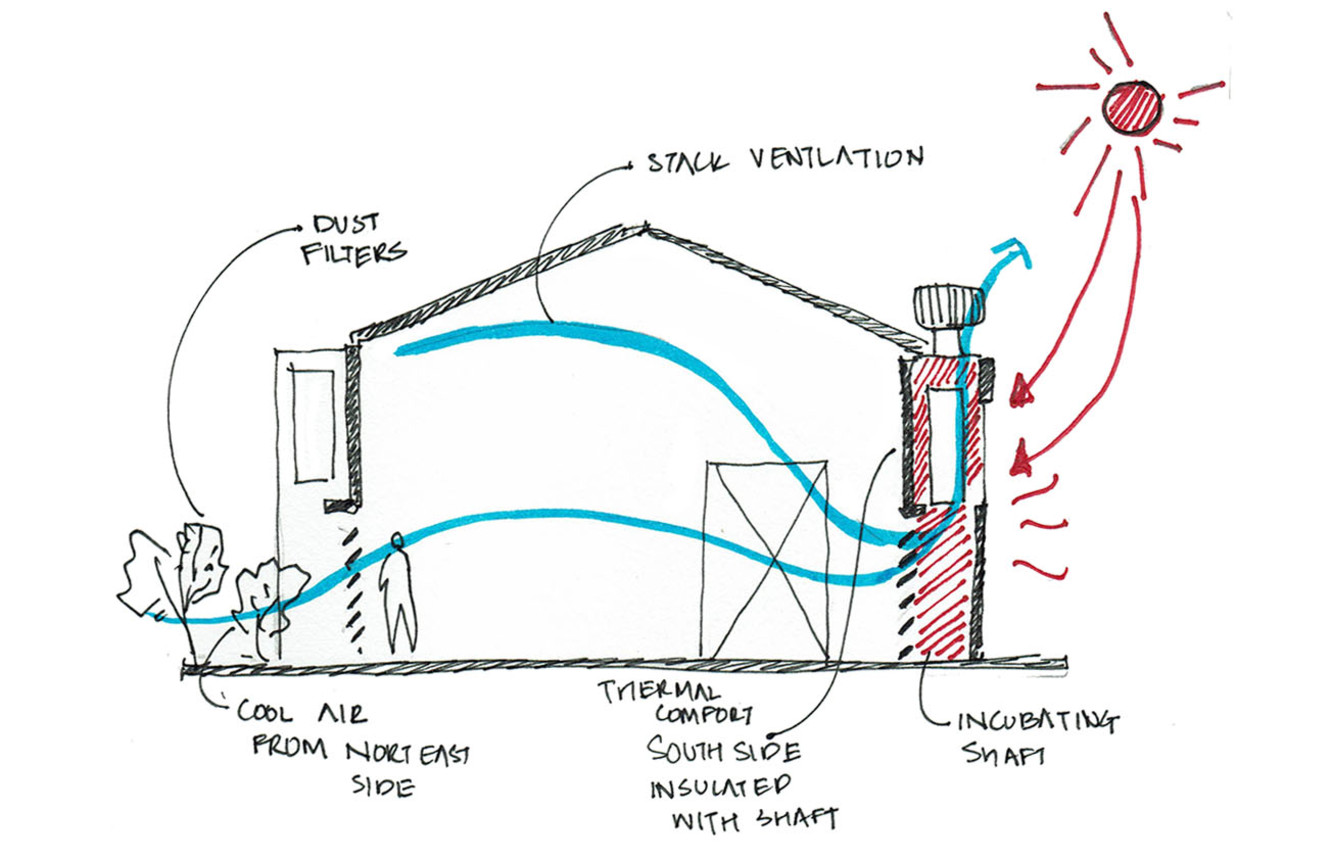 STACK VENTILATION
DUST
FILTERS
COOL AIR
FROM NORTEAST
SIDE
THERMAL
COMFORT
SOUTH SIDE
INSULATED
WITH SHAFT
INCUBATING
SHAFT